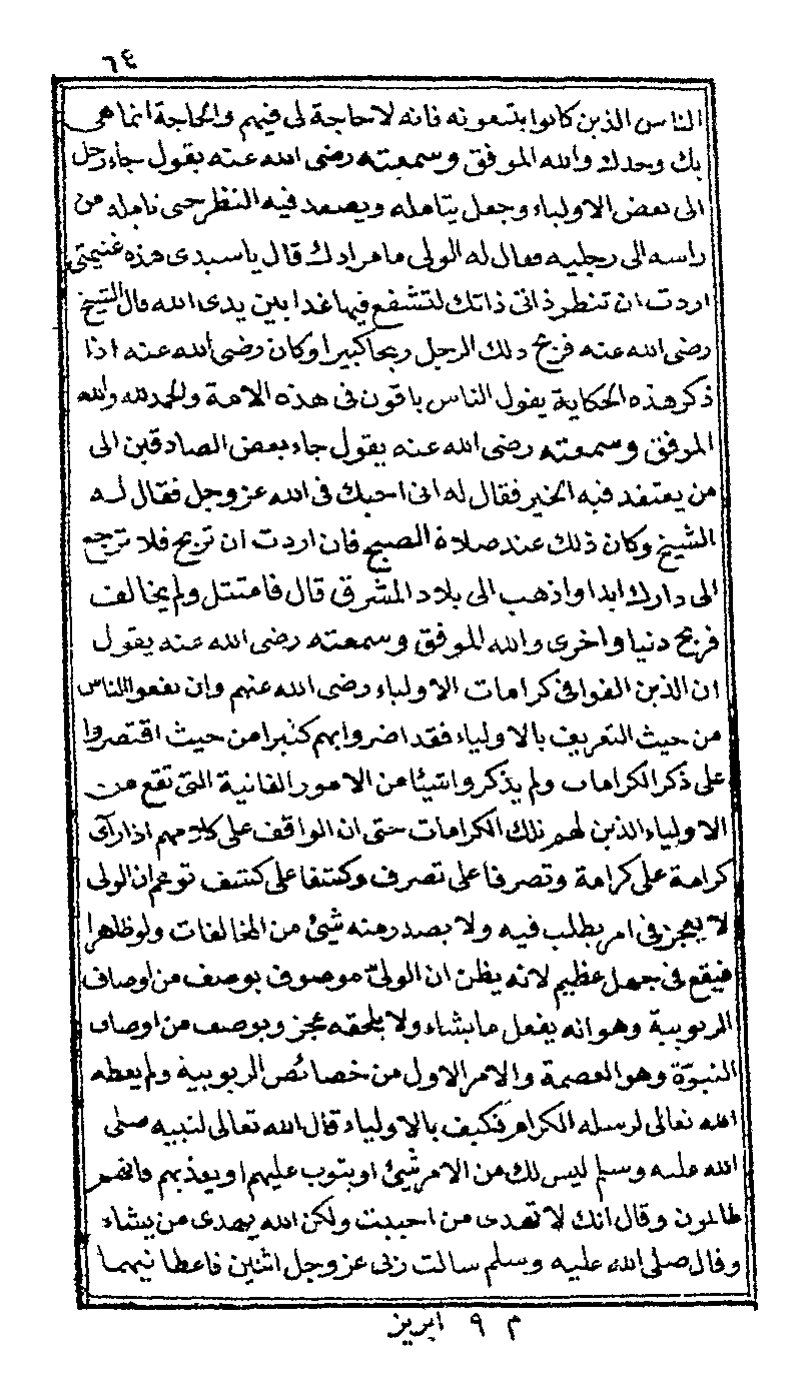 ٦٤
الناس الذين كانوا يتبعونه فانه لا حاجة لى فيهم والحاجة انما هى
بك وحدك والله الموفق وسمعته رضى الله عنه يقول جاء رجل
الى بعض الاولياء وجعل يتامله ويصعد فيه النظر حتى تامله من
راسه الى رجليه فقال له الولى ما مرادك قال يا سيدى هذه غنيمتى
اردت ان تنظر ذاتى ذاتك لتشفع فيها غدا بين يدى الله قال الشيخ
رضى الله عنه فربح ذلك الرجل ربحا كبيرا وكان رضى الله عنه اذا
ذكر هذه الحكاية يقول الناس باقون فى هذه الامة والحمد لله والله
الموفق وسمعته رضى الله عنه يقول جاء بعض الصادقين الى
من يعتقد فيه الخير فقال له انى احبك فى الله عز وجل فقال له
الشيخ وكان ذلك عند صلاة الصبح فان اردت ان تربح فلا ترجع
الى دارك ابدا واذهب الى بلاد المشرق قال فامتثل ولم يخالف
فربح دنيا واخرى والله الموفق وسمعته رضى الله عنه يقول
ان الذين الفوا فى كرامات الاولياء رضى الله عنهم وان نفعوا الناس
من حيث التعريف بالاولياء فقد اضروا بهم كثيرا من حيث اقتصروا
على ذكر الكرامات ولم يذكروا شيئا من الامور الفانية التى تقع من
الاولياء الذين لهم تلك الكرامات حتى ان الواقف على كلامهم اذا رآى
كرامة على كرامة وتصرفا على تصرف وكشفا على كشف توهم ان الولى
لا يعجز فى امر يطلب فيه ولا يصدر منه شيئ من المخالفات ولو ظاهرا
فيقع فى جهل عظيم لانه يظن ان الولىّ موصوف بوصف من اوصاف
الربوبية وهو انه يفعل ما يشاء ولا يلحقه عجز وبوصف من اوصاف
النبوّة وهو العصمة والامر الاول من خصائص الربوبية ولم يعطه
الله تعالى لرسله الكرام فكيف بالاولياء قال الله تعالى لنبيه صلى
الله عليه وسلم ليس لك من الامر شيئ او يتوب عليهم او يعذبهم فانهم
ظالمون وقال انك لا تهدى من احببت ولكن الله يهدى من يشاء
وقال صلى الله عليه وسلم سالت ربى عز وجل اثنين فاعطانيهما
م ٩ ابريز